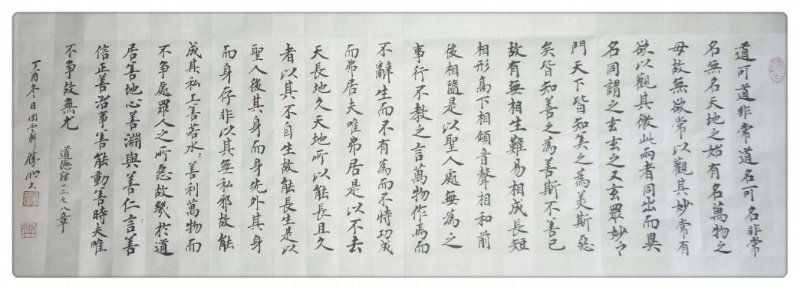 道可道非常道名可名非常
名無名天地之始有名萬物之
母故無欲常以觀其妙常有
欲以觀其徼此兩者同出而異
名同謂之玄玄之又玄眾妙之
門天下皆知美之為美斯惡
矣皆知善之為善斯不善已
故有無相生難易相成長短
相形高下相傾音聲相和前
後相隨是以聖人處無為之
事行不教之言萬物作焉而
不辭生而不有為而不恃功成
而弗居夫唯弗居是以不去
天長地久天地所以能長且久
者以其不自生故能長生是以
聖人後其身而身先外其身
而身存非以其無私邪故能
成其私上善若水：善利萬物而
不爭處眾人之所惡故幾於道
居善地心善淵與善仁言善
信正善治事善能動善時夫唯
不爭故無尤 道德經一二七八章
丁酉冬日